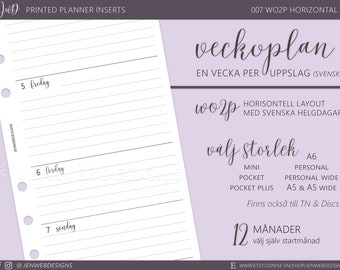 JWD PRINTED PLANNER INSERTS
007 WO2P HORIZONTAL
5 fredag
6 lördag
7 söndag
veckoplan
EN VECKA PER UPPSLAG (SVENSK
wo2p HORISONTELL LAYOUT
MED SVENSKA HELGDAGAR
välj storlek
A6
MINI
PERSONAL
POCKET
PERSONAL WIDE
POCKET PLUS
A5 & A5 WIDE
Finns också till TN & Discs
12 MÅNADER
välj själv startmånad
@JENWEBDESIGNS
@JENWEBDESIGNS